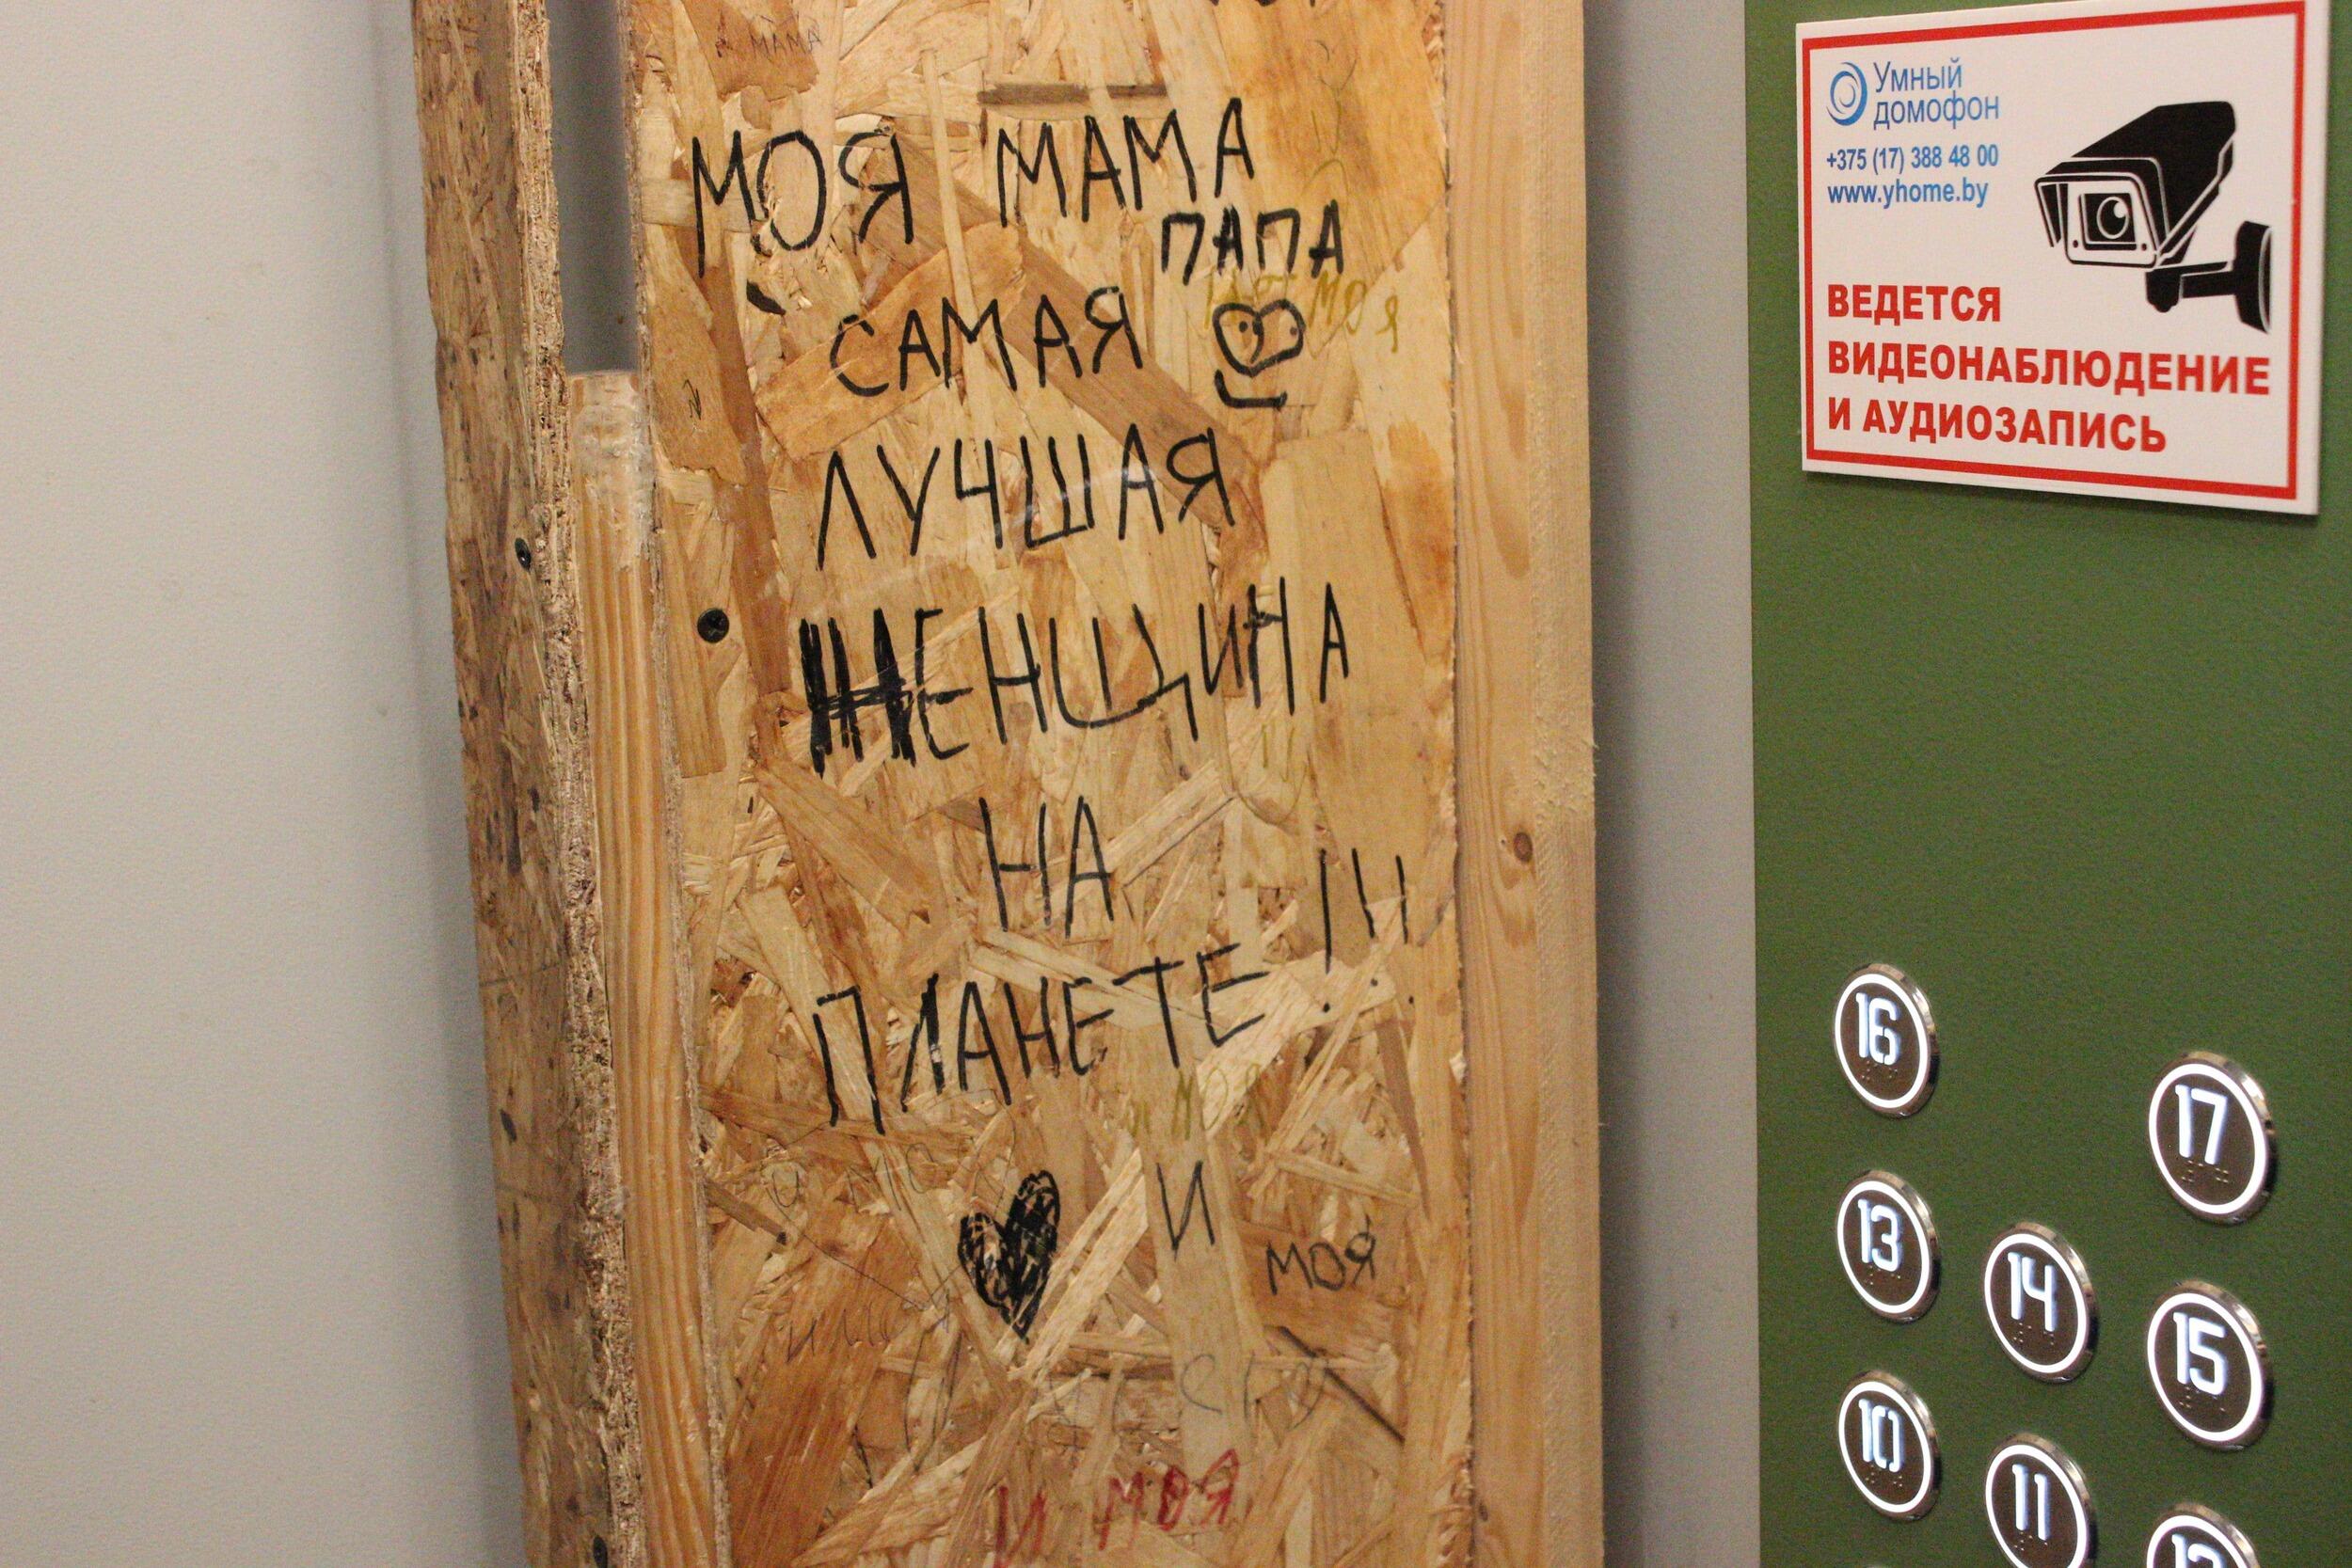 МАМА
МОЯ МАМА
ПАПА
САМАЯ
МОЯ
ЛУЧШАЯ
ЖЕНЩИНА
НА
ПЛАНЕТЕ!!!
И МОЯ
И
МОЯ
И МОЯ
Умный
домофон
+375 (17) 388 48 00
www.yhome.by
ВЕДЕТСЯ
ВИДЕОНАБЛЮДЕНИЕ
И АУДИОЗАПИСЬ
16
17
13
14
15
10
11
12